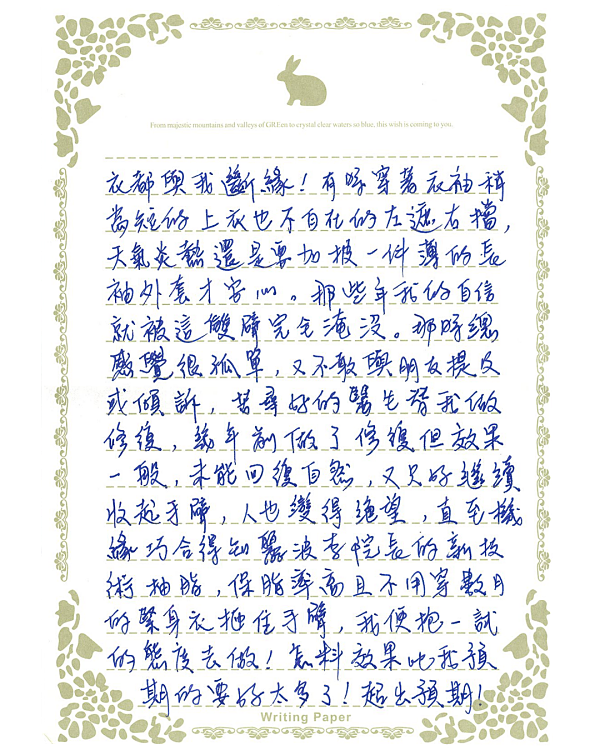 From majestic mountains and valleys of GREen to crystal clear waters so blue, this wish is coming to you.
衣都與我斷緣！有時穿著衣袖稍
為短的上衣也不自在的左遮右擋，
天氣炎熱還是要加披一件薄的長
袖外套才安心。那些年我的自信
就被這雙臂完全淹沒。那時總
感覺很孤單，又不敢與朋友提及
或傾訴，苦尋好的醫生替我做
修復，幾年前做了修復但效果
一般，未能回復自然，又只好繼續
收起手臂，人也變得絶望，直至機
緣巧合得知醫波李院長的新技
術抽脂，保脂率高且不用穿數月
的緊身衣捆住手臂，我便抱一試
的態度去做！怎料效果比我預
期的要好太多了！超出預期！
Writing Paper